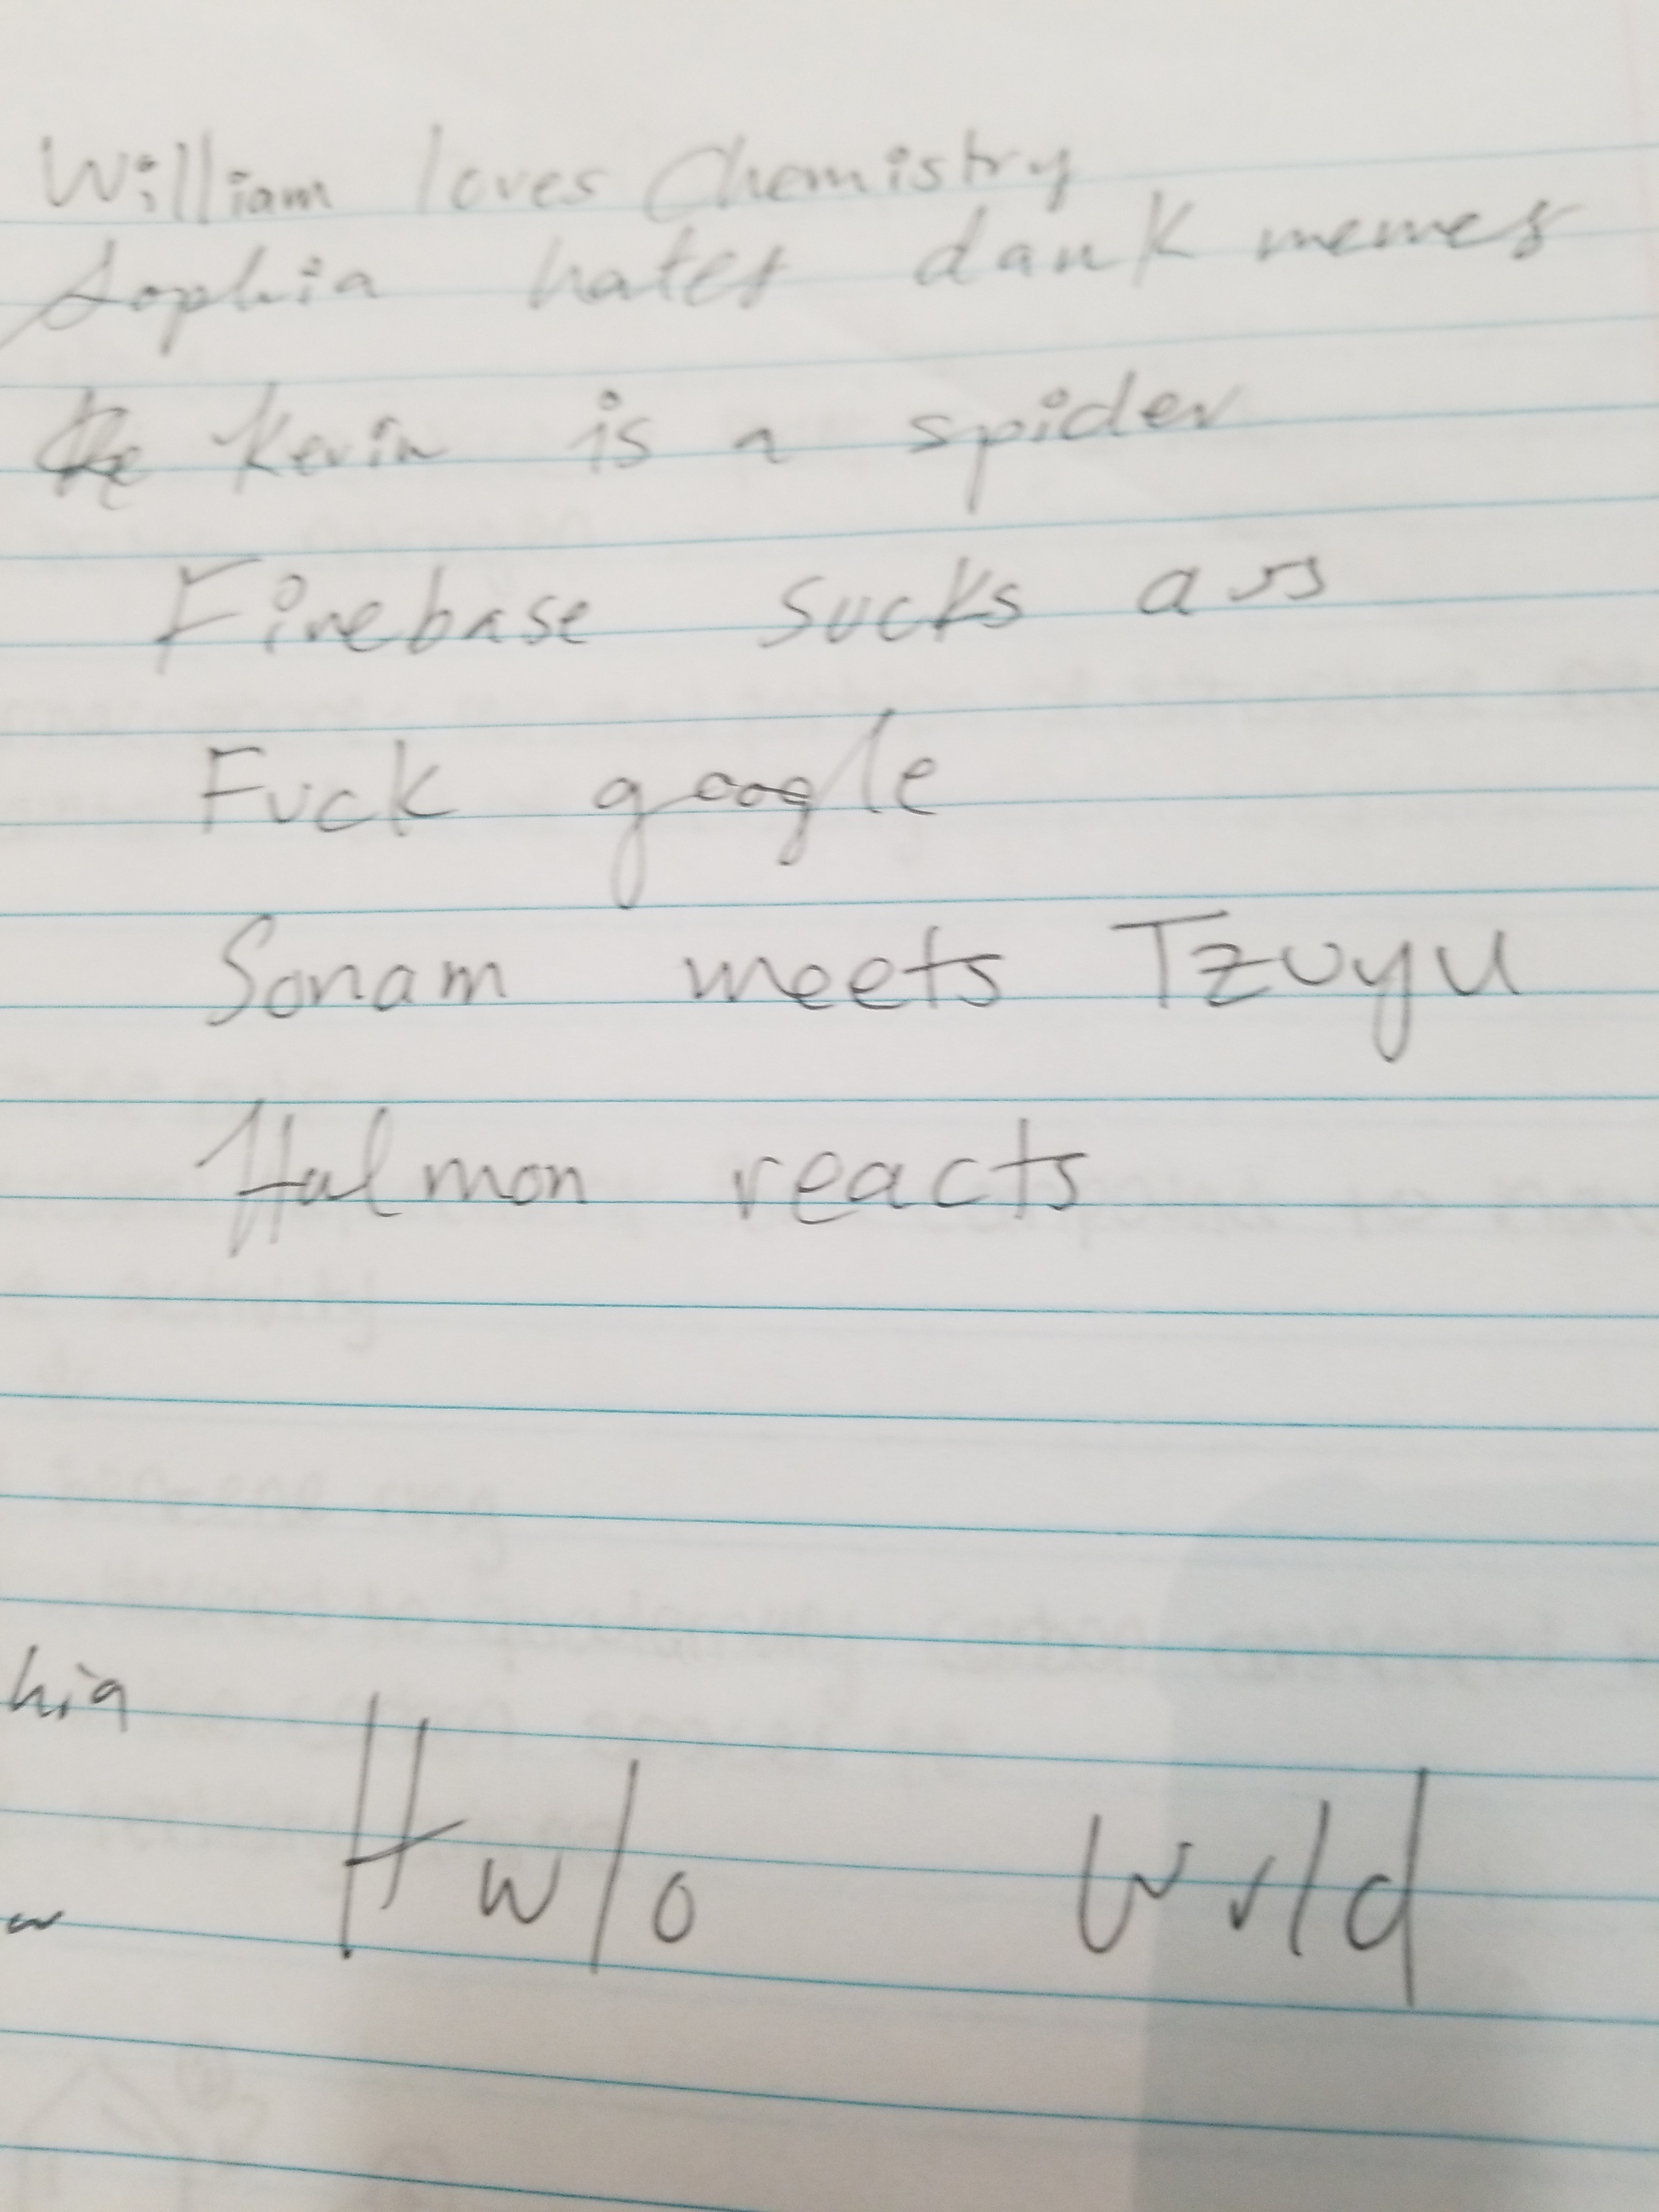 William loves Chemistry
Sophia hates dank memes
Ke Kevin is a spider
Firebase sucks ass
Fuck google
Sonam meets Tzuyu
Halmon reacts
hia
Hwlo Wrld
w